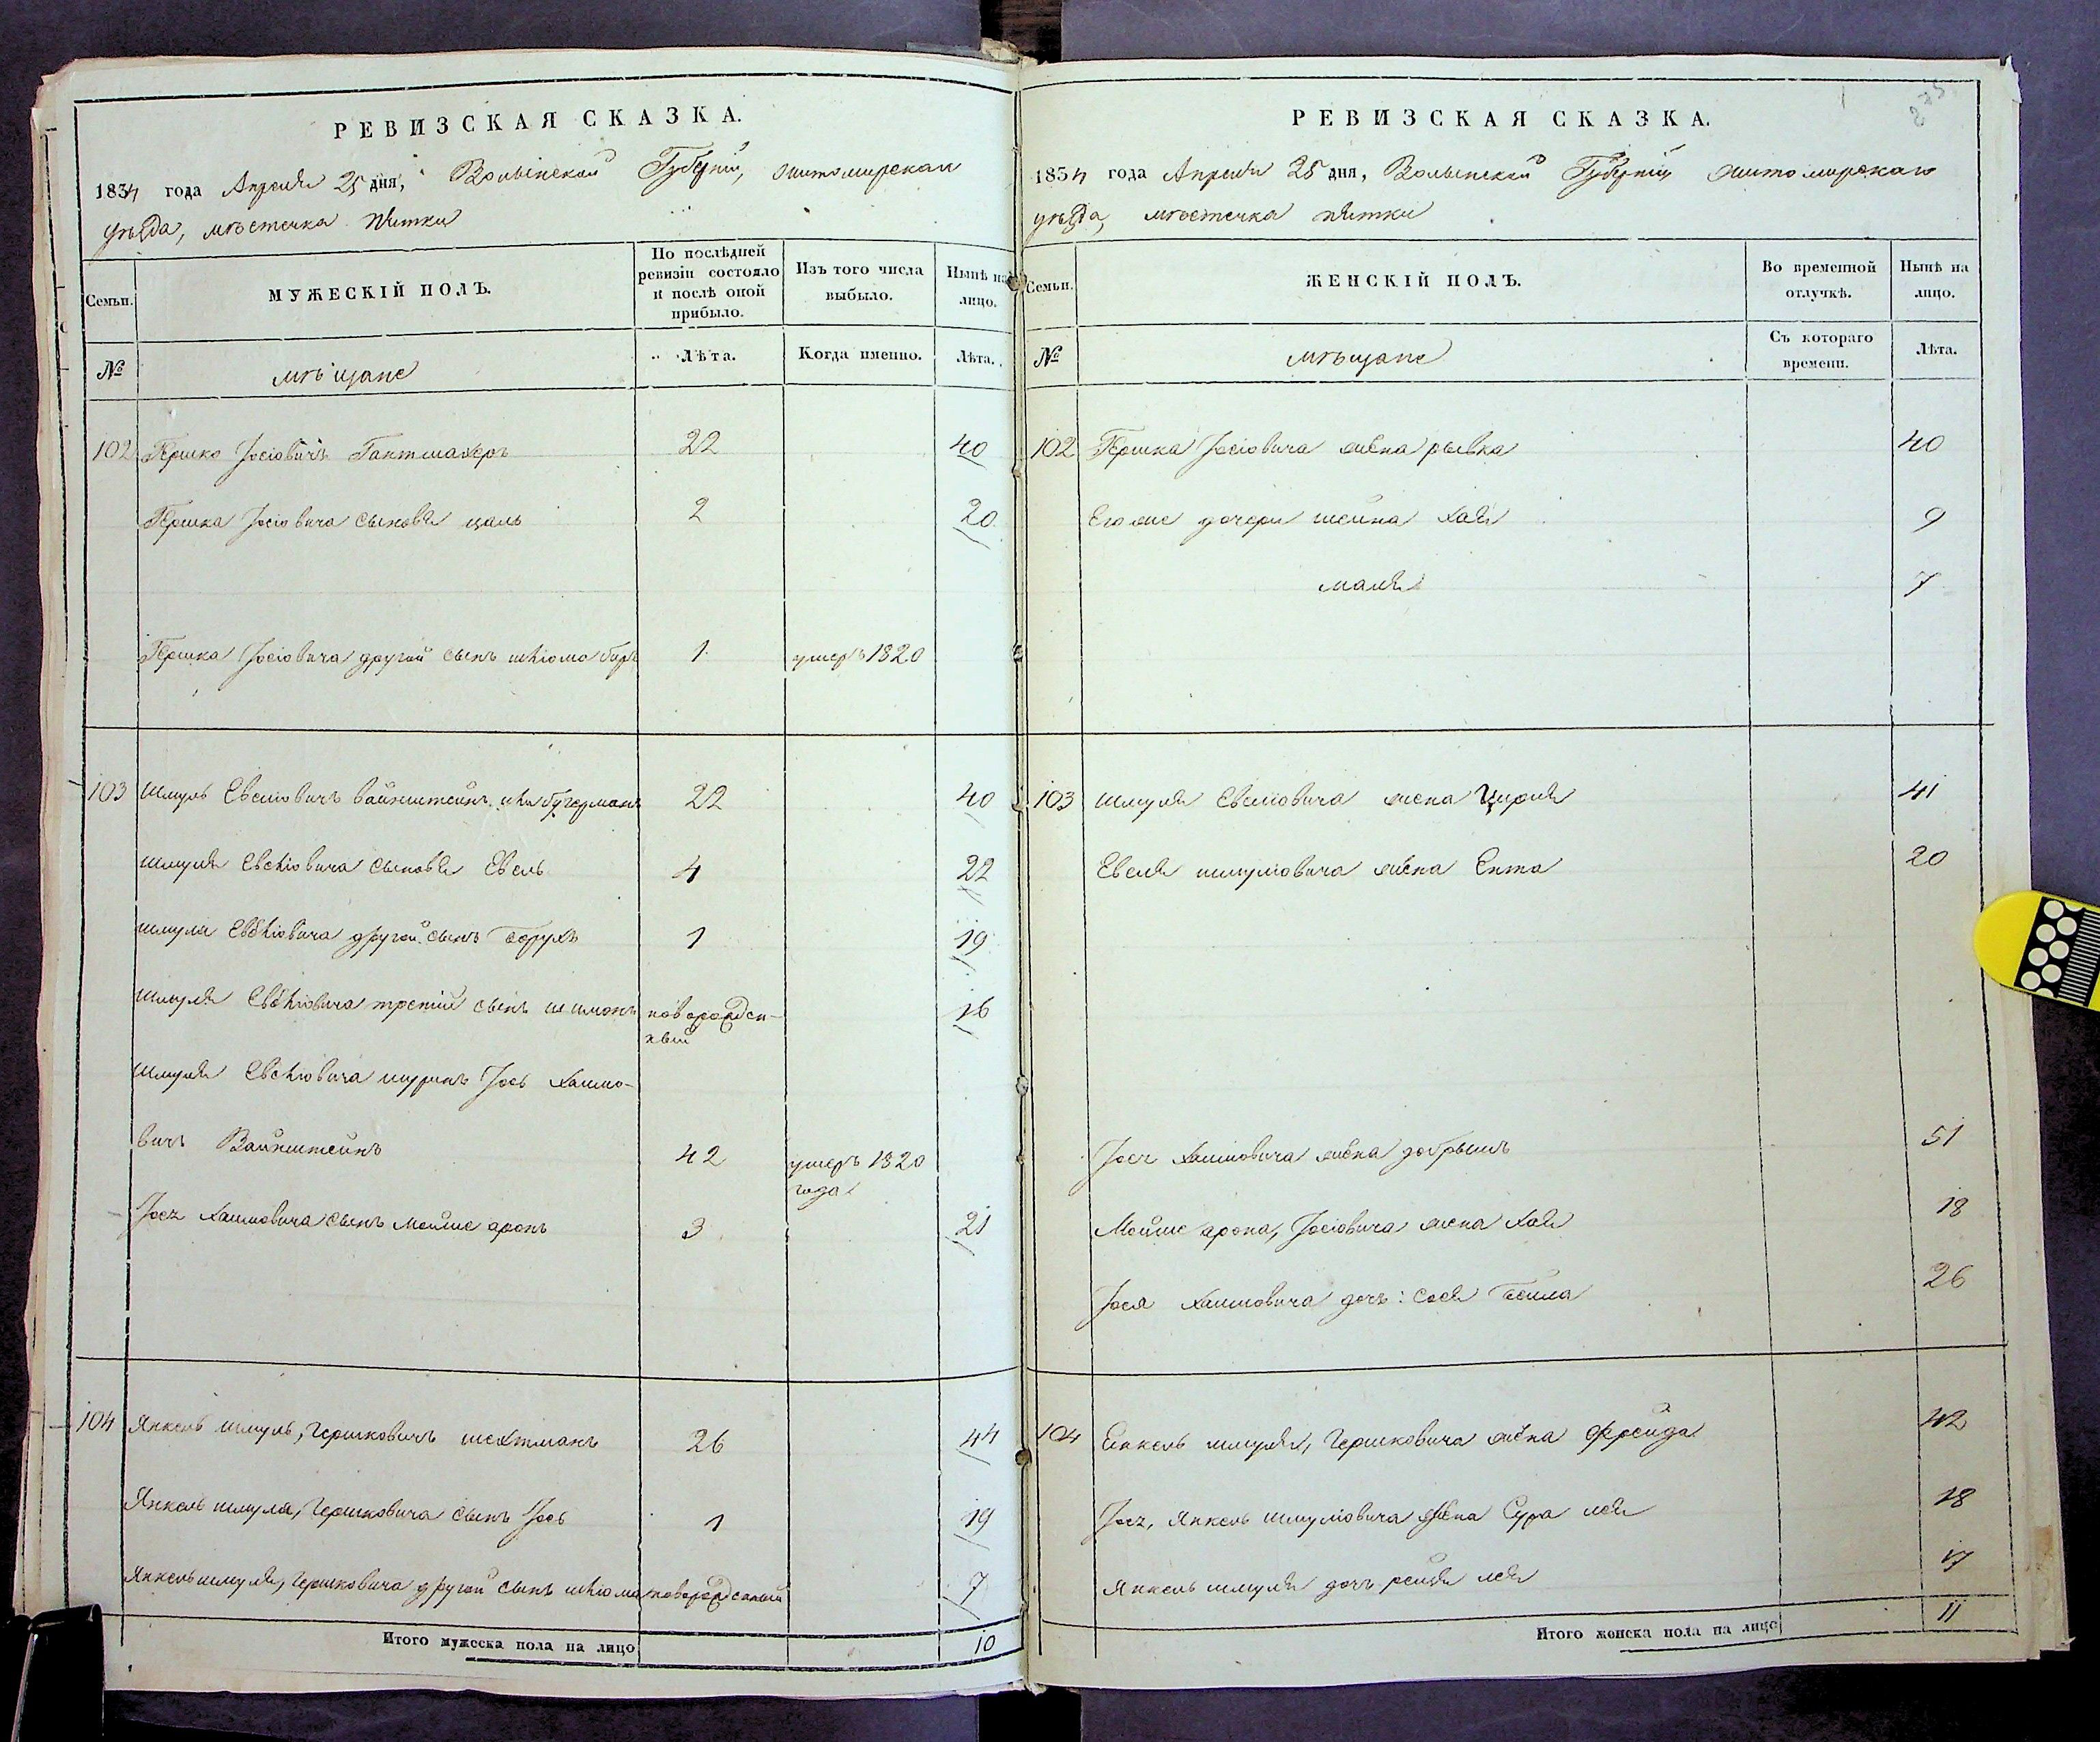 РЕВИЗСКАЯ СКАЗКА.
1834 года Апреля 25 дня, Волынской Губерніи, житомирскаго
уезда, мѣстечка пятки
Семьи.
МУЖЕСКІЙ ПОЛЪ.
По послѣдней ревизіи состояло и послѣ оной прибыло.
Изъ того числа выбыло.
Нынѣ на лицо.
№
мѣщане
Лѣта.
Когда именно.
Лѣта.
102 Гершко Јосіовичъ Гантмахеръ 22 40
Гершка Јосіовича сыновя цаль 2 20
Гершка Јосіовича другой сынъ шліома беръ 1 умеръ 1820
103 Шмуль Евеліовичъ вайнштейнъ или бугерманъ 22 40
Шмуля Евеліовича сыновя Евель 4 22
шмуля Евеліовича другой сынъ Борухъ 1 19
Шмуля Евеліовича третій сынъ шимонъ новорожден-
ный 16
Шмуля Евеліовича шуринъ Јось Хаимо-
вичъ Вайнштейнъ 42 умеръ 1820
года
Јося Хаимовича сынъ Мойше аронъ 3 21
104 Янкель шмуль, Гершковичъ шехтманъ 26 44
Янкель шмуля, Гершковича сынъ Јось 1 19
Янкель шмуля, Гершковича другой сынъ шліома новорожденый 7
Итого мужеска пола на лицо 10
РЕВИЗСКАЯ СКАЗКА.
275
1834 года Апреля 25 дня, Волынской Губерніи житомирскаго
уезда, мѣстечка пятки
Семьи.
ЖЕНСКІЙ ПОЛЪ.
Во временной отлучкѣ.
Нынѣ на лицо.
№
мѣщане
Съ котораго времени.
Лѣта.
102 Гершка Јосіовича жена рывка 40
Его же дочери шейна хая 9
маля 7
103 шмуля Евеліовича жена Цирля 41
Евеля шмуліовича жена Ента 20
Јося Хаимовича жена добрышъ 51
Мойше арона, Јосіовича жена хая 18
Јося Хаимовича дочь: Сося Бейла 26
104 Енкель шмуля, Гершковича жена Фрейда 42
Јося, Янкель шмуліовича жена Сура лея 18
Янкель шмуля дочь рейзя лея 17
Итого женска пола на лицо 11